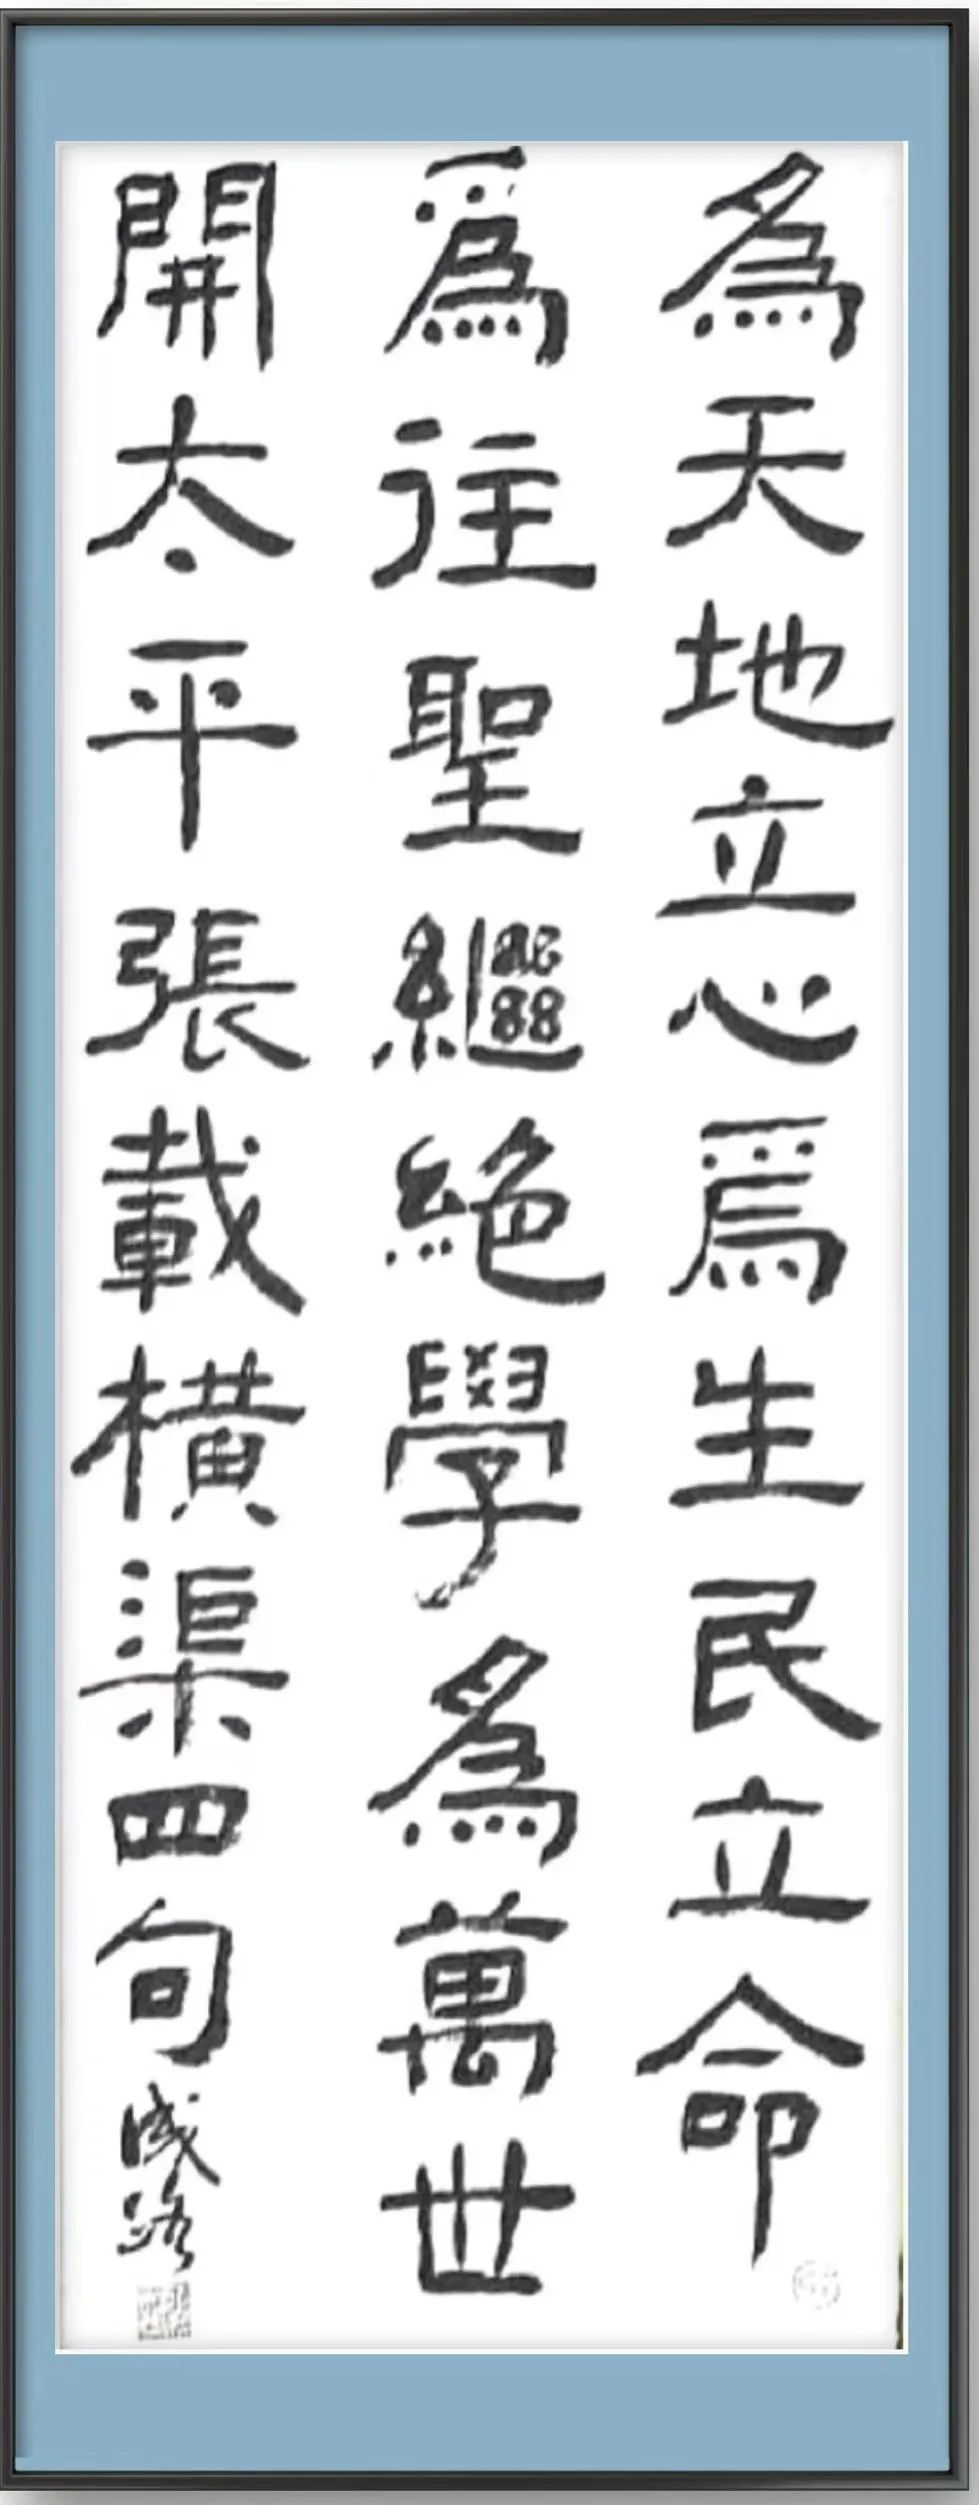 為天地立心爲生民立命
爲往聖繼絕學為萬世
開太平張載橫渠四句
成路